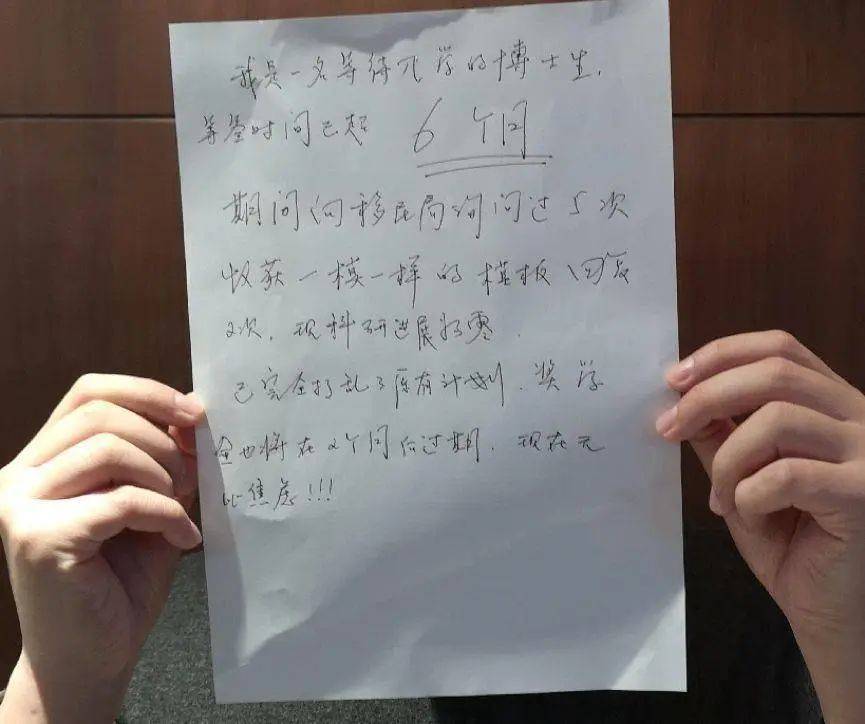 我是一名等待开学的博士生,
等签时间已超 6 个月
期间向移民局询问过5次
收获一模一样的模板回复
2次. 现科研进展为零.
已完全打乱了原有计划. 奖学
金也将在2个月后过期. 现在无
比焦虑!!!